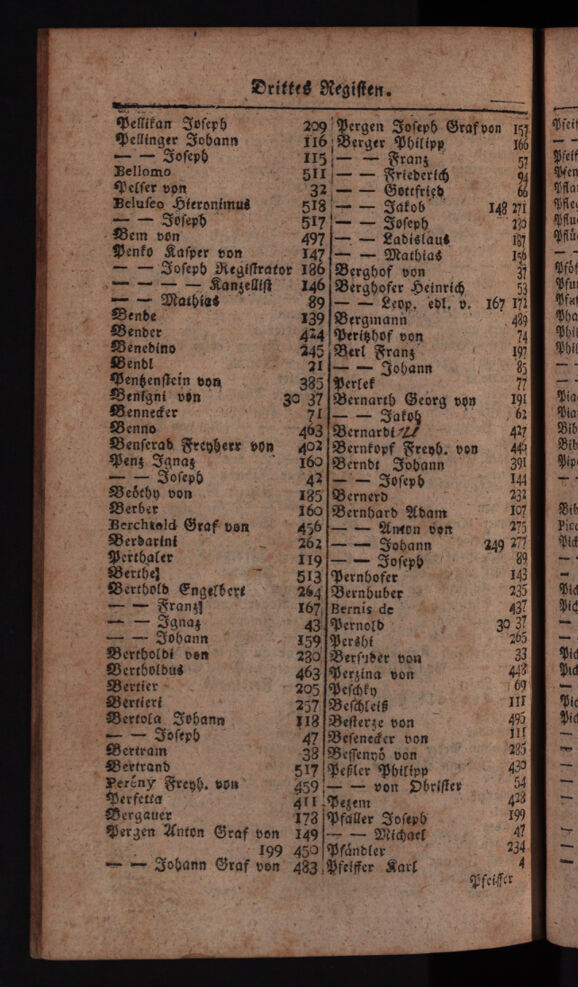 Drittes Registen.
Pellikan Joseph 209
Pellinger Johann 116
— — Joseph 115
Bellomo 511
Pelser von 32
Beluseo Hieronimus 518
— — Joseph 517
Bem von 497
Penko Kasper von 147
— — Joseph Registrator 186
— — — — Kanzellist 146
— — Mathias 89
Bende 139
Bender 424
Benedino 245
Bendl 21
Pentzenstein von 385
Benigni von 30 37
Bennecker 71
Benno 463
Benserad Freyherr von 402
Penz Ignaz 160
— — Joseph 42
Beöthy von 185
Berber 160
Berchtold Graf von 456
Berdarini 262
Perthaler 119
Berthel 513
Berthold Engelbert 264
— — Franz 167
— — Ignaz 43
— — Johann 159
Bertholdi von 230
Bertholdus 463
Bertier 205
Bertieri 257
Bertola Johann 118
— — Joseph 47
Bertram 38
Bertrand 517
Pereny Freyh. von 459
Perfetta 411
Bergauer 178
Pergen Anton Graf von 149
199 450
— — Johann Graf von 483
Pergen Joseph Graf von 157
Berger Philipp 166
— — Franz 57
— — Friederich 94
— — Gottfried 66
— — Jakob 148 271
— — Joseph 230
— — Ladislaus 187
— — Mathias 156
Berghof von 37
Berghofer Heinrich 53
— — Leop. edl. v. 167 172
Bergmann 489
Peritzhof von 74
Berl Franz 197
— — Johann 85
Perlet 77
Bernarth Georg von 191
— — Jakob 62
Bernardi 427
Bernkopf Freyh. von 449
Berndt Johann 391
— — Joseph 144
Bernerd 232
Bernhard Adam 107
— — Anton von 275
— — Johann 249 277
— — Joseph 89
Pernhofer 143
Bernhuber 235
Bernis de 437
Pernold 30 37
Pershi 265
von 33
Perzina von 448
Peschky 69
Beschleiß 111
Besterze von 495
Besenecker von 111
Bessenyö von 285
Peßler Philipp 430
— — von Obrister 54
Pezem 428
Pfaller Joseph 199
— — Michael 47
Pfändler 234
Pfeiffer Karl 4
Pfeiffer